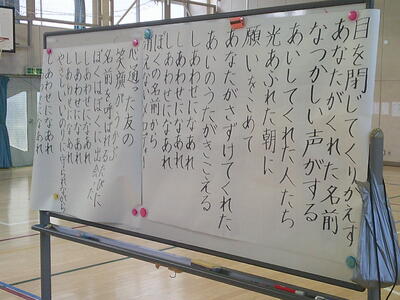 目を閉じてくりかえす
あなたがくれた名前
なつかしい声がする
あいしてくれた人たち
光あふれた朝に
願いをこめて
あなたがさずけてくれた
あいのうたがきこえる
しあわせになあれ
しあわせになあれ
しあわせになあれ
ぼくの名前から
消えない
心通った友の
笑顔がうかぶ
名前を呼ばれるたびに
ぼくはぼくに出会った
やさしいいのりに守られながら
しあわせになあれ
しあわせになあれ